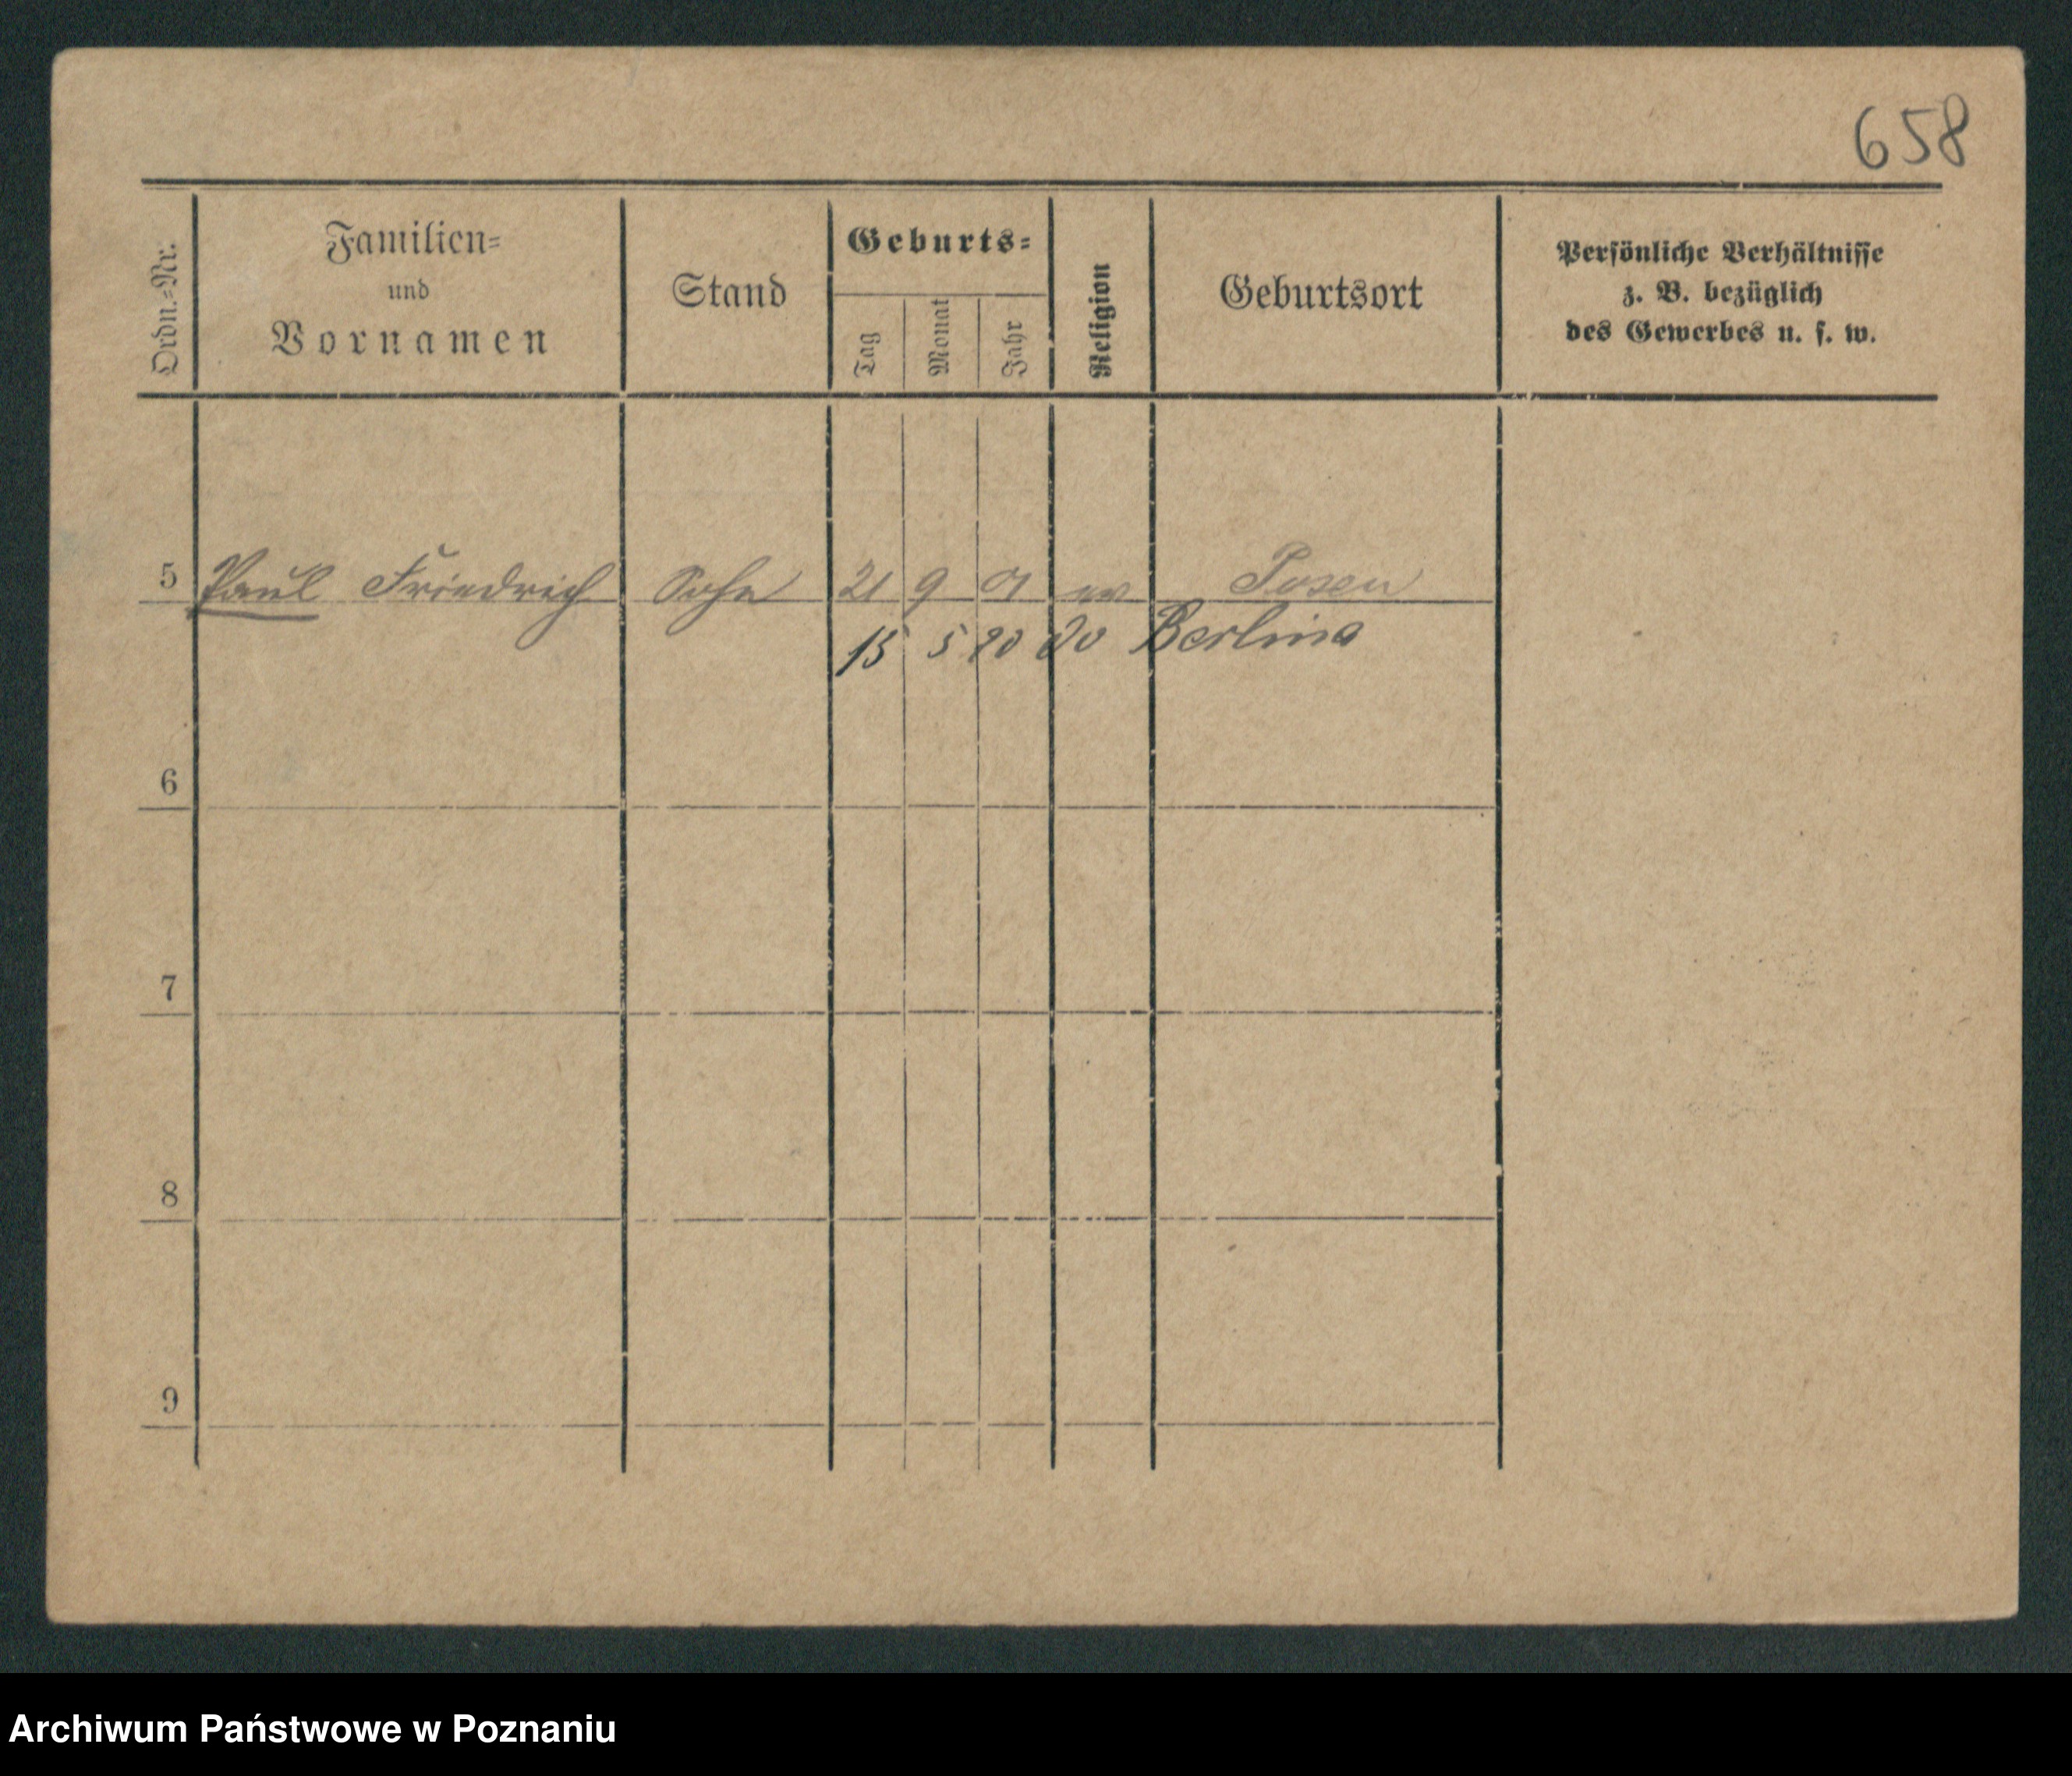 658
Ordn.=Nr.
Familien=
und
Vornamen
Stand
Geburts=
Tag
Monat
Jahr
Religion
Geburtsort
Persönliche Verhältnisse
z. B. bezüglich
des Gewerbes u. s. w.
5 Paul Friedrich Sohn 21 9 01 ev Posen
15 5 20 do Berlin
6
7
8
9
Archiwum Państwowe w Poznaniu